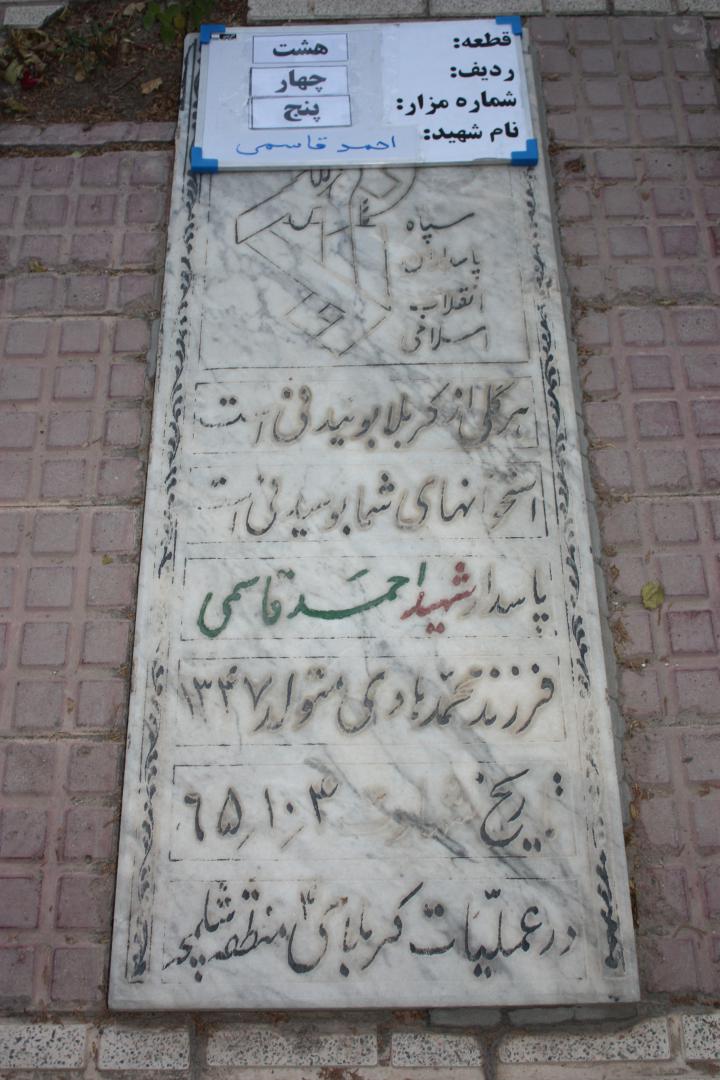 قطعه: هشت
ردیف: چهار
شماره مزار: پنج
نام شهید: احمد قاسمی
سپاه
پاسداران
انقلاب
اسلامی
هر گلی از کربلا بوئیدنی است
استخوانهای شما بوسیدنی است
پاسدار شهید احمد قاسمی
فرزند محمدهادی متولد ۱۳۴۷
تاریخ شهادت ۶۵٫۱۰٫۴
در عملیّات کربلای ۴ منطقه شلمچه